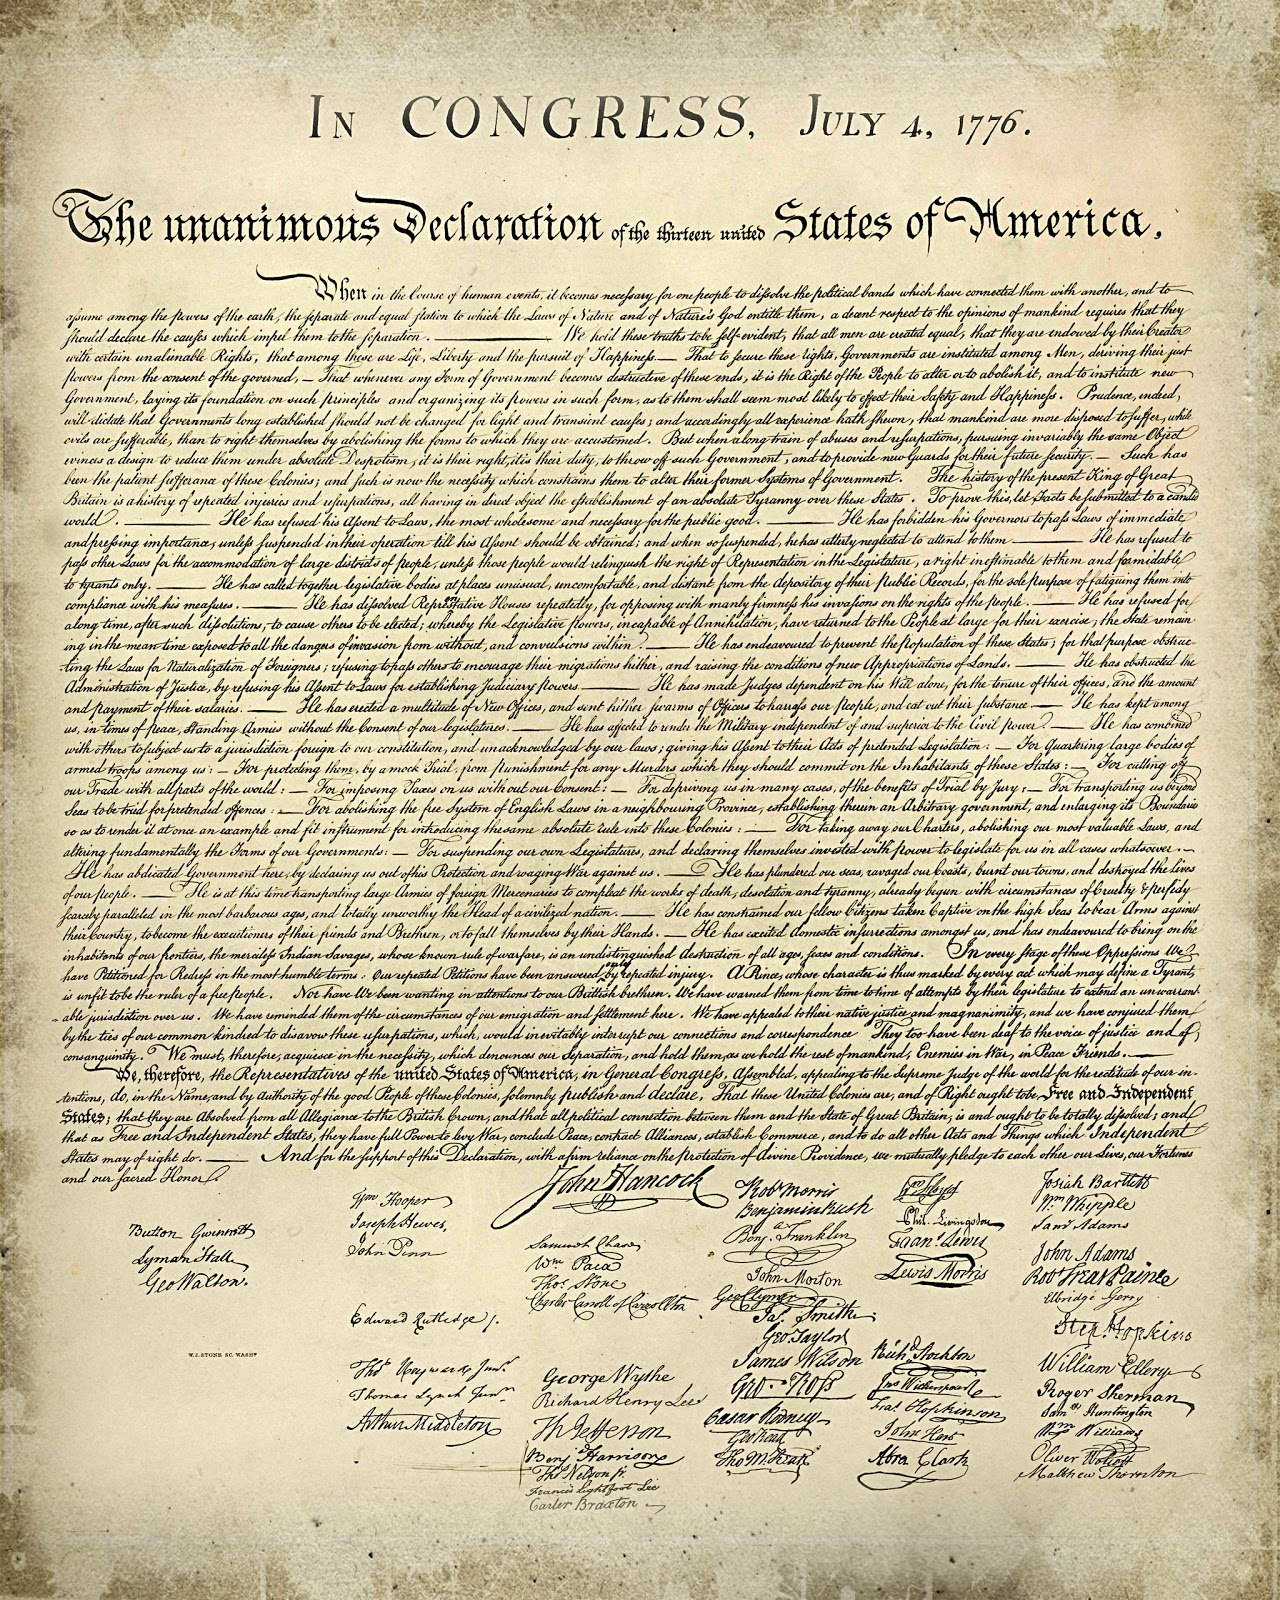 In CONGRESS, July 4, 1776.
The unanimous Declaration of the thirteen united States of America,
When in the Course of human events, it becomes necessary for one people to dissolve the political bands which have connected them with another, and to
assume among the powers of the earth, the separate and equal station to which the Laws of Nature and of Nature's God entitle them, a decent respect to the opinions of mankind requires that they
should declare the causes which impel them to the separation. — We hold these truths to be self-evident, that all men are created equal, that they are endowed by their Creator
with certain unalienable Rights, that among these are Life, Liberty and the pursuit of Happiness.— That to secure these rights, Governments are instituted among Men, deriving their just
powers from the consent of the governed, — That whenever any Form of Government becomes destructive of these ends, it is the Right of the People to alter or to abolish it, and to institute new
Government, laying its foundation on such principles and organizing its powers in such form, as to them shall seem most likely to effect their Safety and Happiness. Prudence, indeed,
will dictate that Governments long established should not be changed for light and transient causes; and accordingly all experience hath shewn, that mankind are more disposed to suffer, while
evils are sufferable, than to right themselves by abolishing the forms to which they are accustomed. But when a long train of abuses and usurpations, pursuing invariably the same Object
evinces a design to reduce them under absolute Despotism, it is their right, it is their duty, to throw off such Government, and to provide new Guards for their future security. — Such has
been the patient sufferance of these Colonies; and such is now the necessity which constrains them to alter their former Systems of Government. The history of the present King of Great
Britain is a history of repeated injuries and usurpations, all having in direct object the establishment of an absolute Tyranny over these States. To prove this, let Facts be submitted to a candid
world. — He has refused his Assent to Laws, the most wholesome and necessary for the public good. — He has forbidden his Governors to pass Laws of immediate
and pressing importance, unless suspended in their operation till his Assent should be obtained; and when so suspended, he has utterly neglected to attend to them — He has refused to
pass other Laws for the accommodation of large districts of people, unless those people would relinquish the right of Representation in the Legislature, a right inestimable to them and formidable
to tyrants only. — He has called together legislative bodies at places unusual, uncomfortable, and distant from the depository of their public Records, for the sole purpose of fatiguing them into
compliance with his measures. — He has dissolved Representative Houses repeatedly, for opposing with manly firmness his invasions on the rights of the people. — He has refused for
a long time, after such dissolutions, to cause others to be elected; whereby the Legislative powers, incapable of Annihilation, have returned to the People at large for their exercise; the State remain
ing in the mean time exposed to all the dangers of invasion from without, and convulsions within. — He has endeavoured to prevent the population of these States; for that purpose obstruc
ting the Laws for Naturalization of Foreigners; refusing to pass others to encourage their migrations hither, and raising the conditions of new Appropriations of Lands. — He has obstructed the
Administration of Justice, by refusing his Assent to Laws for establishing Judiciary powers — He has made Judges dependent on his Will alone, for the tenure of their offices, and the amount
and payment of their salaries. — He has erected a multitude of New Offices, and sent hither swarms of Officers to harrass our people, and eat out their substance — He has kept among
us, in times of peace, Standing Armies without the Consent of our legislatures. — He has affected to render the Military independent of and superior to the Civil power. — He has combined
with others to subject us to a jurisdiction foreign to our constitution, and unacknowledged by our laws; giving his Assent to their Acts of pretended Legislation: — For Quartering large bodies of
armed troops among us: — For protecting them, by a mock Trial, from punishment for any Murders which they should commit on the Inhabitants of these States: — For cutting off
our Trade with all parts of the world: — For imposing Taxes on us without our Consent: — For depriving us in many cases, of the benefits of Trial by Jury: — For transporting us beyond
Seas to be tried for pretended offences: — For abolishing the free System of English Laws in a neighbouring Province, establishing therein an Arbitrary government, and enlarging its Boundaries
so as to render it at once an example and fit instrument for introducing the same absolute rule into these Colonies: — For taking away our Charters, abolishing our most valuable Laws, and
altering fundamentally the Forms of our Governments: — For suspending our own Legislatures, and declaring themselves invested with power to legislate for us in all cases whatsoever. —
He has abdicated Government here, by declaring us out of his Protection and waging War against us. — He has plundered our seas, ravaged our Coasts, burnt our towns, and destroyed the lives
of our people. — He is at this time transporting large Armies of foreign Mercenaries to compleat the works of death, desolation and tyranny, already begun with circumstances of Cruelty & perfidy
scarcely paralleled in the most barbarous ages, and totally unworthy the Head of a civilized nation. — He has constrained our fellow Citizens taken Captive on the high Seas to bear Arms against
their Country, to become the executioners of their friends and Brethren, or to fall themselves by their Hands. — He has excited domestic insurrections amongst us, and has endeavoured to bring on the
inhabitants of our frontiers, the merciless Indian Savages, whose known rule of warfare, is an undistinguished destruction of all ages, sexes and conditions. In every stage of these Oppressions We
have Petitioned for Redress in the most humble terms: Our repeated Petitions have been answered only by repeated injury. A Prince, whose character is thus marked by every act which may define a Tyrant,
is unfit to be the ruler of a free people. Nor have We been wanting in attentions to our Brittish brethren. We have warned them from time to time of attempts by their legislature to extend an unwarrant
able jurisdiction over us. We have reminded them of the circumstances of our emigration and settlement here. We have appealed to their native justice and magnanimity, and we have conjured them
by the ties of our common kindred to disavow these usurpations, which, would inevitably interrupt our connections and correspondence They too have been deaf to the voice of justice and of
consanguinity. We must, therefore, acquiesce in the necessity, which denounces our Separation, and hold them, as we hold the rest of mankind, Enemies in War, in Peace Friends. —
We, therefore, the Representatives of the united States of America, in General Congress, Assembled, appealing to the Supreme Judge of the world for the rectitude of our in-
tentions, do, in the Name, and by Authority of the good People of these Colonies, solemnly publish and declare, That these United Colonies are, and of Right ought to be Free and Independent
States; that they are Absolved from all Allegiance to the British Crown, and that all political connection between them and the State of Great Britain, is and ought to be totally dissolved; and
that as Free and Independent States, they have full Power to levy War, conclude Peace, contract Alliances, establish Commerce, and to do all other Acts and Things which Independent
States may of right do. — And for the support of this Declaration, with a firm reliance on the protection of divine Providence, we mutually pledge to each other our Lives, our Fortunes
and our sacred Honor.
Button Gwinnett
Lyman Hall
Geo Walton.
W.J. STONE SC. WASHN
Wm Hooper
Joseph Hewes,
John Penn
Edward Rutledge /.
Thos Heyward Junr.
Thomas Lynch Junr.
Arthur Middleton
John Hancock
Samuel Chase
Wm Paca
Thos. Stone
Charles Carroll of Carrollton
George Wythe
Richard Henry Lee
Th Jefferson
Benj Harrison
Thos Nelson jr.
Francis Lightfoot Lee
Carter Braxton
Robt Morris
Benjamin Rush
Benja. Franklin
John Morton
Geo Clymer
Jas. Smith
Geo. Taylor
James Wilson
Geo. Ross
Caesar Rodney
Geo Read
Tho M:Kean
Wm Floyd
Phil. Livingston
Frans. Lewis
Lewis Morris
Richd. Stockton
Jno Witherspoon
Fras. Hopkinson
John Hart
Abra Clark
Josiah Bartlett
Wm: Whipple
Saml Adams
John Adams
Robt Treat Paine
Elbridge Gerry
Step. Hopkins
William Ellery
Roger Sherman
Samel Huntington
Wm. Williams
Oliver Wolcott
Matthew Thornton